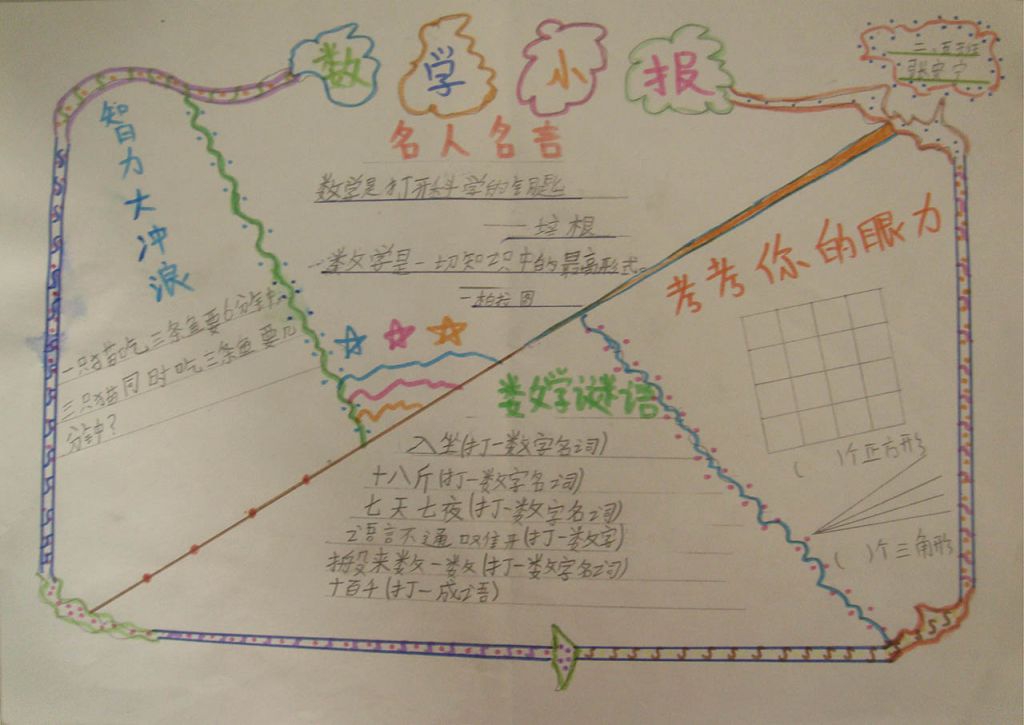 数学小报
二、五班
名人名言
数学是打开科学的钥匙
——培根
数学是一切知识中的最高形式。
—柏拉图
智力大冲浪
一只猫吃三条鱼要6分钟,
三只猫同时吃三条鱼要几
分钟?
考考你的眼力
( )个正方形
( )个三角形
数学谜语
入坐(打一数字名词)
十八斤(打一数字名词)
七天七夜(打一数字名词)
语言不通(打一数字)
搬来数一数(打一数字名词)
十百千(打一成语)